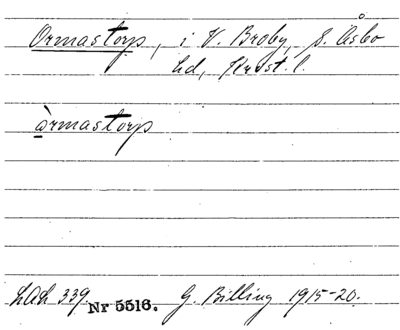 Ormastorp, i V. Broby, S. Åsbo
hd, Krist. l.
òrmastorp
LAL 339. Nr 5516. G. Billing 1915-20.